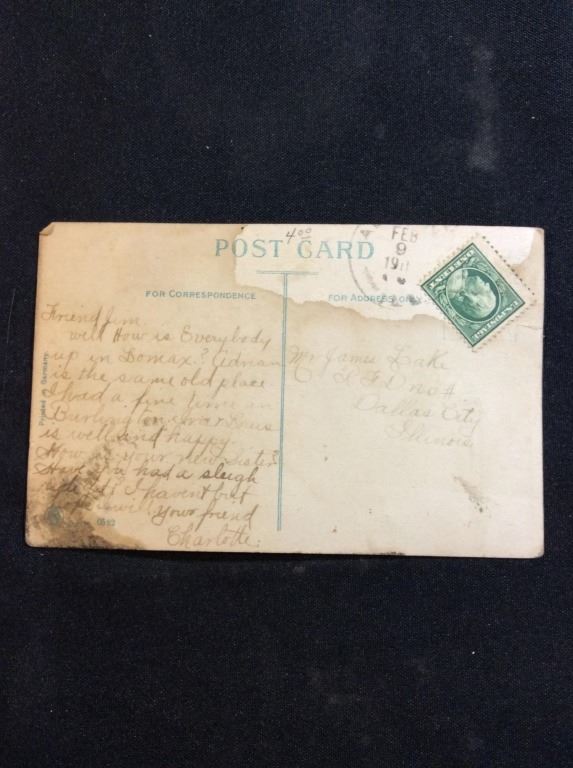 4.00
POST CARD
FEB
9
191
FOR CORRESPONDENCE
FOR ADDRESS ONLY
U.S. POSTAGE
Printed in Germany.
Friend Jim
well How is Everybody
up in Lomax? Adrian
is the same old place
I had a fine time in
Burlington
is well and happy.
How is your new Sister?
Have you had a sleigh
ride yet? I havent but
will your friend
Charlotte.
Mr James Lake
R F D no 4
Dallas City
Illinois